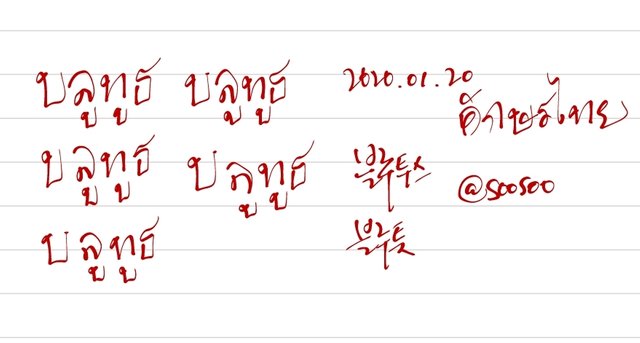 บลูทูธ บลูทูธ 2020.01.20
อักษรไทย
บลูทูธ บลูทูธ 블루투스
@soosoo
บลูทูธ 블루툿